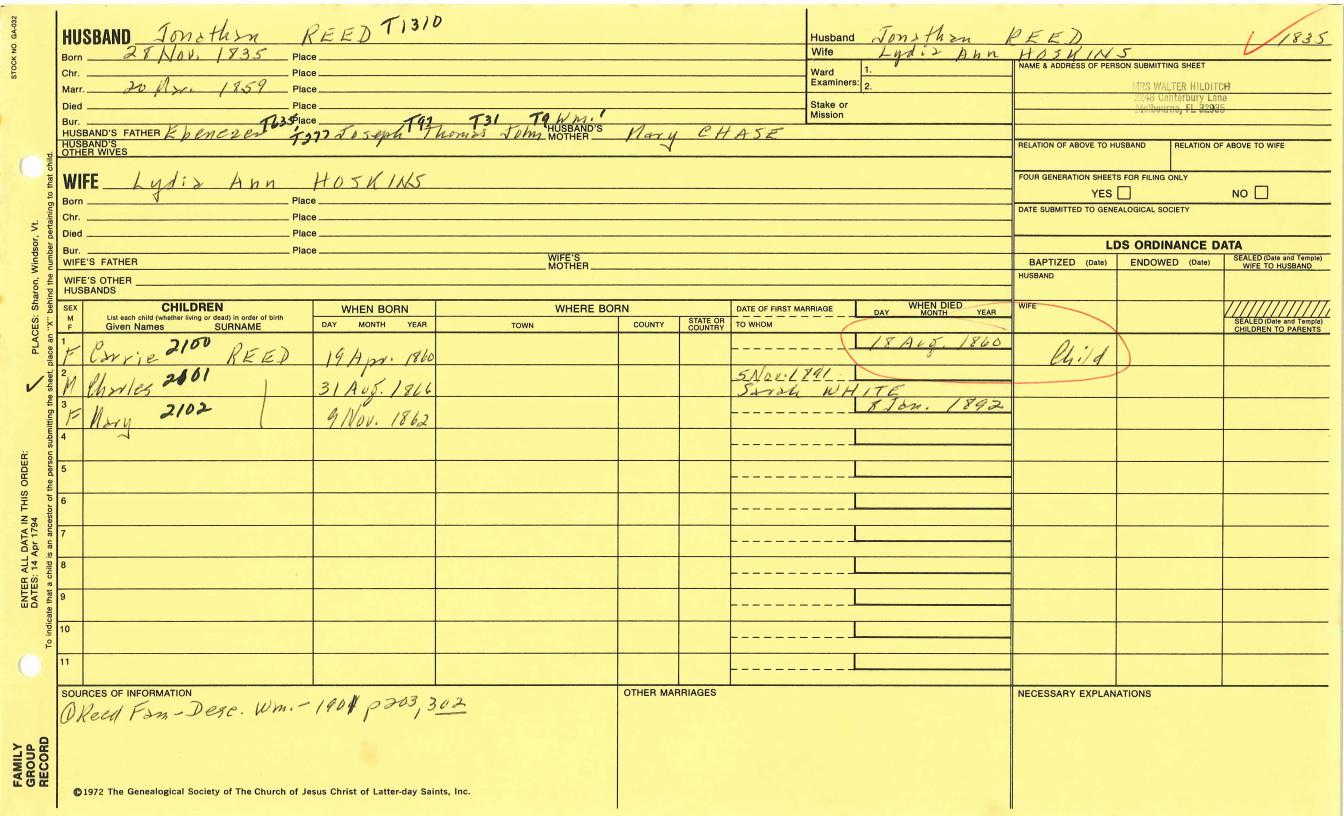 STOCK NO. GA-032
HUSBAND Jonathan REED T1310
Born 28 Nov. 1835 Place
Chr. Place
Marr. 20 1859 Place
Died Place
Bur. Place
HUSBAND'S FATHER Ebenezer T635 T277 Joseph T92 Thomas T31 John T9 Wm.1 HUSBAND'S MOTHER Mary CHASE
HUSBAND'S OTHER WIVES
Husband Jonathan REED 1835
Wife Lydia Ann HOSKINS
Ward Examiners: 1.
2.
Stake or Mission
NAME & ADDRESS OF PERSON SUBMITTING SHEET
MRS WALTER HILDITCH
Canterbury Lane
Melbourne, FL
RELATION OF ABOVE TO HUSBAND RELATION OF ABOVE TO WIFE
FOUR GENERATION SHEETS FOR FILING ONLY
YES NO
DATE SUBMITTED TO GENEALOGICAL SOCIETY
WIFE Lydia Ann HOSKINS
Born Place
Chr. Place
Died Place
Bur. Place
WIFE'S FATHER WIFE'S MOTHER
WIFE'S OTHER HUSBANDS
LDS ORDINANCE DATA
BAPTIZED (Date) ENDOWED (Date) SEALED (Date and Temple) WIFE TO HUSBAND
HUSBAND
WIFE
SEALED (Date and Temple) CHILDREN TO PARENTS
SEX M F CHILDREN WHEN BORN WHERE BORN DATE OF FIRST MARRIAGE WHEN DIED
List each child (whether living or dead) in order of birth
Given Names SURNAME DAY MONTH YEAR TOWN COUNTY STATE OR COUNTRY TO WHOM DAY MONTH YEAR
1 F Carrie 2100 REED 19 Apr. 1860 18 Aug. 1860 Child
2 M Charles 2101 31 Aug. 1866 5 Nov. 1891 Sarah WHITE
3 F Mary 2102 9 Nov. 1862 8 Jan. 1892
4
5
6
7
8
9
10
11
SOURCES OF INFORMATION
① Reed Fam - Desc. Wm. - 1901 p203, 302
OTHER MARRIAGES
NECESSARY EXPLANATIONS
©1972 The Genealogical Society of The Church of Jesus Christ of Latter-day Saints, Inc.
FAMILY GROUP RECORD
ENTER ALL DATA IN THIS ORDER:
DATES: 14 Apr 1794 PLACES: Sharon, Windsor, Vt.
To indicate that a child is an ancestor of the person submitting the sheet, place an "X" behind the number pertaining to that child.